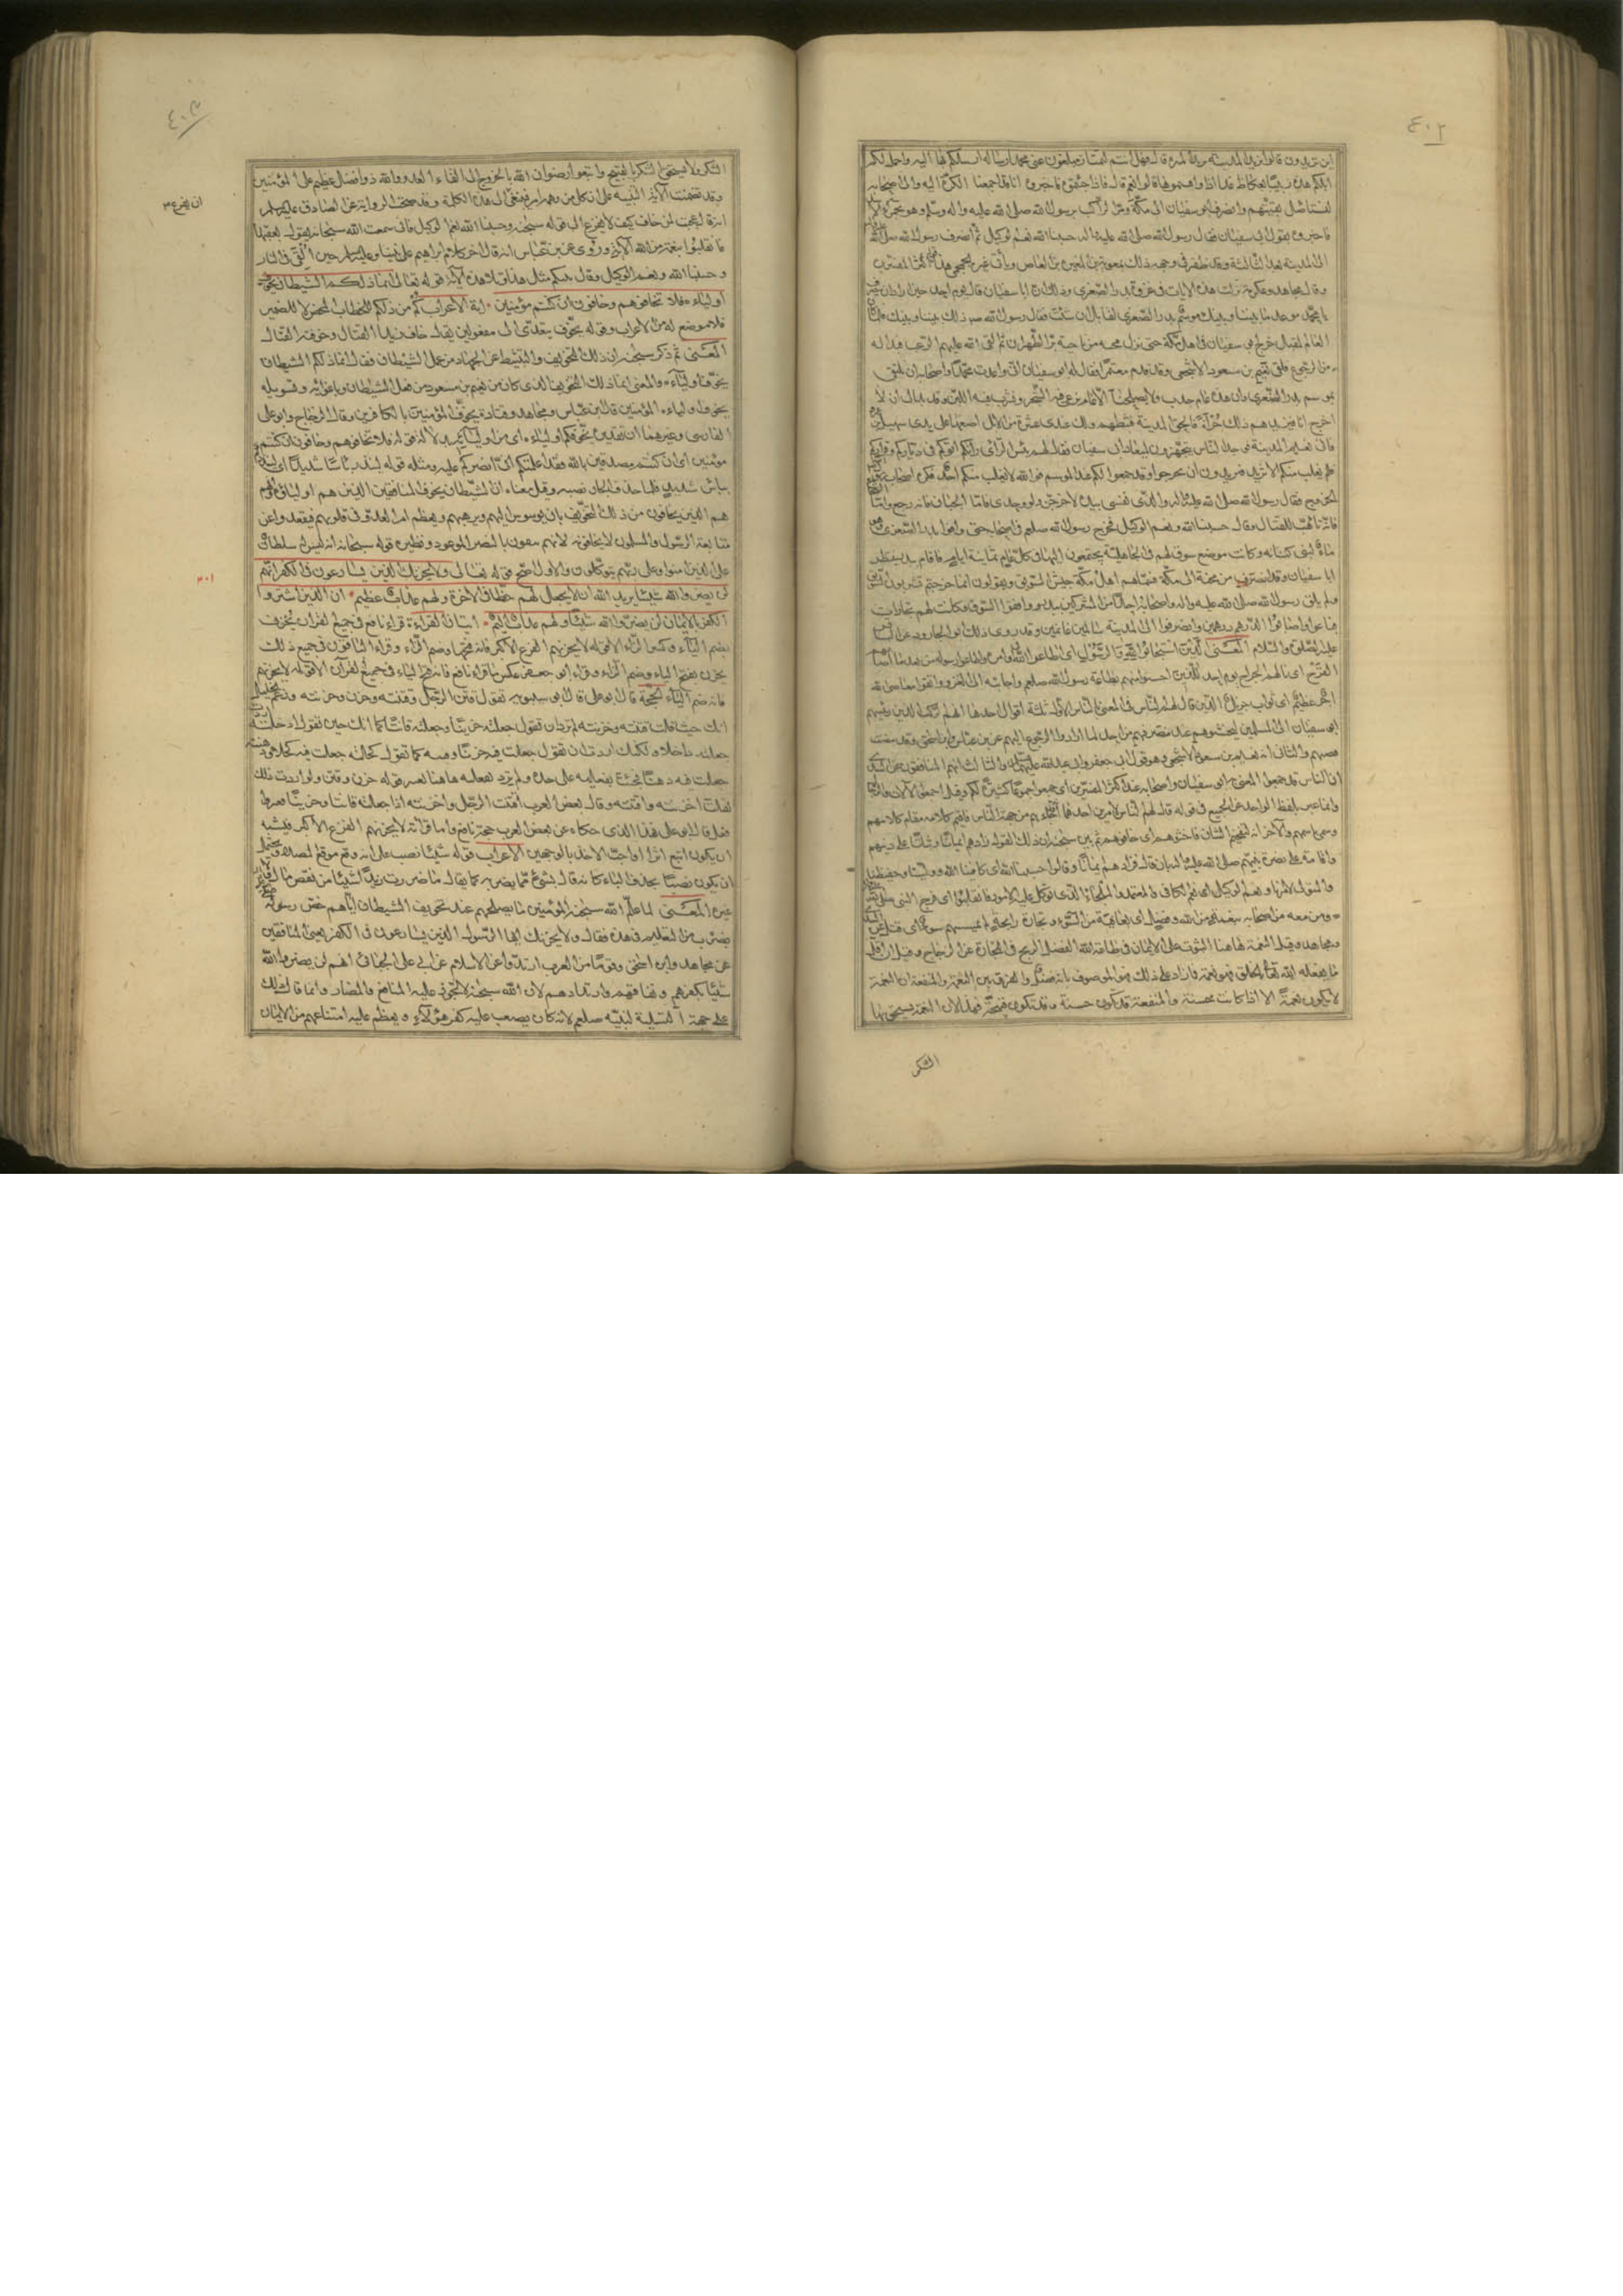 ٤٠٢
اين تريدون قالوا نريد المدينة نريد الميرة قال فهل انتم مبلغون عني محمدا رسالة ارسلكم بها اليه واحمل لكم
ابلكم هذه زبيبا بعكاظ غدا اذا وافيتموها قالوا نعم قال فاذا جئتموه فاخبروه انا قد اجمعنا الكرة اليه والى اصحابه
لنستاصل بقيتهم وانصرف ابو سفيان الى مكة ومر الركب برسول الله صلى الله عليه واله وسلم وهو بحمراء الاسد
فاخبروه بقول ابي سفيان فقال رسول الله صلى الله عليه واله حسبنا الله ونعم الوكيل ثم انصرف رسول الله صلى الله
الى المدينة بعد الثالثة وقد ظفر في وجهه ذلك بمعوية بن المغيرة بن العاص وابي غرة الجمحي وهذا قول اكثر المفسرين
وقال مجاهد وعكرمة نزلت هذه الايات في غزوة بدر الصغرى وذلك ان ابا سفيان قال يوم احد حين اراد ان ينصرف
يا محمد موعد ما بيننا وبينك موسم بدر الصغرى لقابل ان شئت فقال رسول الله صلى ذلك بيننا وبينك فلما كان
العام المقبل خرج ابو سفيان في اهل مكة حتى نزل مجنة من ناحية مر الظهران ثم القى الله عليهم الرعب فبدا له
من الرجوع فلقي نعيم بن مسعود الاشجعي وقد قدم معتمرا فقال له ابو سفيان اني واعدت محمدا واصحابه ان نلتقي
بموسم بدر الصغرى وان هذه عام جدب ولا يصلحنا الا عام نرعى فيه الشجر ونشرب فيه اللبن وقد بدا لي ان لا
اخرج اليها فيزيدهم ذلك جرأة فالحق بالمدينة فثبطهم ولك عندي عشرة من الابل اضعها على يدي سهيل بن
فاتى نعيم المدينة فوجد الناس يتجهزون لميعاد ابي سفيان فقال لهم بئس الراي رايكم اتوكم في دياركم وقراركم
فلم يفلت منكم الا شريد فتريدون ان تخرجوا وقد جمعوا لكم عند الموسم فوالله لا يفلت منكم احد فكره اصحاب
الخروج فقال رسول الله صلى الله عليه واله والذي نفسي بيده لاخرجن ولو وحدي فاما الجبان فانه رجع واما
فانه تاهب للقتال وقال حسبنا الله ونعم الوكيل فخرج رسول الله صلعم في اصحابه حتى وافوا بدر الصغرى وهو
ماء لبني كنانة وكانت موضع سوق لهم في الجاهلية يجتمعون اليها في كل عام ثمانية ايام فاقام ببدر ينتظر
ابا سفيان وقد انصرف من مجنة الى مكة فسماهم اهل مكة جيش السويق ويقولون انما خرجتم تشربون
ولم يلق رسول الله صلى الله عليه واله واصحابه احدا من المشركين ببدر ووافوا السوق وكانت لهم تجارات
فباعوا واصابوا الدرهم درهمين وانصرفوا الى المدينة سالمين غانمين وقد روى ذلك ابو الجارود عن الباقر
عليه الصلوة والسلام المعنى الذين استجابوا لله والرسول اى اطاعوا الله في اوامره واطاعوا رسوله من بعد ما اصابهم
القرح اى نالهم الجراح يوم احد للذين احسنوا منهم بطاعة رسول الله صلعم واجابته الى الغزو واتقوا معاصي الله
اجر عظيم اى ثواب جزيل الذين قال لهم الناس في المعنى بالناس الاول ثلثة اقوال احدها انهم الركب الذين دسهم
ابو سفيان الى المسلمين ليجبنوهم عند منصرفهم من احد لما ارادوا الرجوع اليهم عن ابن عباس وابن اسحق وقد مضت
قصتهم والثاني انه نعيم بن مسعود الاشجعي وهو قول ابي جعفر وابي عبد الله عليهما السلام والثالث انهم المنافقون عن السدي
ان الناس قد جمعوا لكم المعني به ابو سفيان واصحابه عند اكثر المفسرين اى جمعوا جموعا كثيرة لكم وقيل اجمعوا الآلات والرجال
وانما عبر بلفظ الواحد عن الجميع في قوله قال لهم الناس لامرين احدهما انه قد جاءهم من جهة الناس فاقيم كلامه مقام كلامهم
وسمي باسمهم والاخر انه لتفخيم الشان فاخشوهم اى خافوهم ثم بين سبحانه ان ذلك القول زادهم ايمانا وثباتا على دينهم
واقامة على نصرة نبيهم صلى الله عليه واله بان قال فزادهم ايمانا وقالوا حسبنا الله اى كافينا الله وولينا وحفيظنا
والمتولي لامرنا ونعم الوكيل اى نعم الكافي والمعتمد والملجا الذي توكل عليه الامور فانقلبوا اى فرجع النبي صلى الله
ومن معه من اصحابه بنعمة من الله وفضل اى بعافية من السوء وتجارة رابحة لم يمسسهم سوء اى قتل عن السدي
ومجاهد وقيل النعمة هاهنا الثبوت على الايمان في طاعة الله والفضل الربح في التجارة عن الزجاج وقيل ان اقل
ما يفعله الله تعالى بالخلق فهو نعمة فما زاد على ذلك فهو الموصوف بانه فضل والفرق بين النعمة والمنفعة ان النعمة
لا يكون نعمة الا اذا كانت حسنة والمنفعة قد تكون حسنة وقد تكون قبيحة وهذا لان النعمة يستحق بها
الشكر
٤٠٣
الشكر ولا يستحق الشكر بالقبيح واتبعوا رضوان الله بالخروج الى لقاء العدو والله ذو فضل عظيم على المؤمنين
وقد تضمنت الآية التنبيه على ان كل من دهمه امر فينبغي ان يفزع الى هذه الكلمة وقد صحت الرواية عن الصادق عليه السلام
انه قال عجبت لمن خاف كيف لا يفزع الى قوله سبحانه وحسبنا الله ونعم الوكيل فاني سمعت الله سبحانه يقول بعقبها
فانقلبوا بنعمة من الله الآية وروي عن ابن عباس انه قال اخر كلام ابراهيم على نبينا وعليه السلام حين القي في النار
حسبنا الله ونعم الوكيل وقال نبيكم مثلها وتلا هذه الآية قوله تعالى انما ذلكم الشيطان يخوف
اولياءه فلا تخافوهم وخافون ان كنتم مؤمنين اية الاعراب كم من ذلكم للخطاب المحض لا للضمير
فلا موضع له من الاعراب وقوله يخوف يتعدى الى مفعولين يقال خاف زيد القتال وخوفته القتال
المعنى ثم ذكر سبحانه ان ذلك التخويف والتثبيط عن الجهاد من عمل الشيطان فقال انما ذلكم الشيطان
يخوف اولياءه والمعنى انما ذلك التخويف الذي كان من نعيم بن مسعود من فعل الشيطان وباغوائه وتسويله
يخوف اولياءه المؤمنين قال ابن عباس ومجاهد وقتادة يخوف المؤمنين بالكافرين وقال الزجاج وابو علي
الفارسي وغيرهما ان تقديره يخوفكم اولياءه اى من اوليائه بدلالة قوله فلا تخافوهم وخافون ان كنتم
مؤمنين اى ان كنتم مصدقين بالله فقد اعلمتكم اني انصركم عليهم ومثله قوله لينذر باسا شديدا اى لينذركم
بباس شديد فلما حذف الجار نصبه وقيل معناه ان الشيطان يخوف المنافقين الذين هم اولياؤه وانهم
هم الذين يخافون من ذلك التخويف بان يوسوس اليهم ويرهبهم ويعظم امر العدو في قلوبهم فيقعدوا عن
متابعة الرسول والمسلمون لا يخافونه لانهم يثقون بالنصر الموعود ونظيره قوله سبحانه انه ليس له سلطان
على الذين امنوا وعلى ربهم يتوكلون والاول اصح قوله تعالى ولا يحزنك الذين يسارعون في الكفر انهم
لن يضروا الله شيئا يريد الله ان لا يجعل لهم حظا في الاخرة ولهم عذاب عظيم ان الذين اشتروا
الكفر بالايمان لن يضروا الله شيئا ولهم عذاب اليم ايتان القراءة قرا نافع في جميع القران يحزنك
بضم الياء وكسر الزاء الا قوله لا يحزنهم الفزع الاكبر فانه فتحها وضم الزاء وقرا الباقون في جميع ذلك
يحزن بفتح الياء وضم الزاء وقرا ابو جعفر عكس ما قراه نافع فانه فتح الياء في جميع القرآن الا قوله لا يحزنهم
فانه ضم الياء الحجة قال ابو علي قال سيبويه تقول فتن الرجل وفتنته وحزن وحزنته وزعم الخليل
انك حيث قلت فتنته وحزنته لم ترد ان تقول جعلته حزينا وجعلته فاتنا كما انك حين تقول ادخلته
جعلته داخلا ولكنك اردت ان تقول جعلت فيه حزنا وفتنة كما تقول كحلته جعلت فيه كحلا ودهنته
جعلت فيه دهنا فجئت بفعلته على حده ولم ترد بفعلته هاهنا تغيير قوله حزن وفتن ولو اردت ذلك
لقلت احزنته وافتنته وقال بعض العرب افتنت الرجل واحزنته اذا جعلته فاتنا وحزينا فغيروا
فعل قال ابو علي فهذا الذي حكاه عن بعض العرب حجة نافع واما قراءته لا يحزنهم الفزع الاكبر فيشبه
ان يكون اتبع اثرا او احب الاخذ بالوجهين الاعراب قوله شيئا نصب على انه وقع موقع المصدر ويحتمل
ان يكون نصبا بحذف الباء كانه قال بشئ مما يضر به كما يقال ما ضررت زيدا شيئا من نقص مال ولا
غيره المعنى لما علم الله سبحانه المؤمنين ما يصلحهم عند تخويف الشيطان اياهم خص رسوله
بضرب من التعليم في هذه فقال ولا يحزنك ايها الرسول الذين يسارعون في الكفر يعني المنافقين
عن مجاهد وابن اسحق وقوما من العرب ارتدوا عن الاسلام عن ابي علي الجبائي انهم لن يضروا الله
شيئا بكفرهم ونفاقهم وارتدادهم لان الله سبحانه لا يجوز عليه المنافع والمضار وانما قال ذلك
على جهة التسلية لنبيه صلعم لانه كان يصعب عليه كفر هؤلاء ويعظم عليه امتناعهم من الايمان